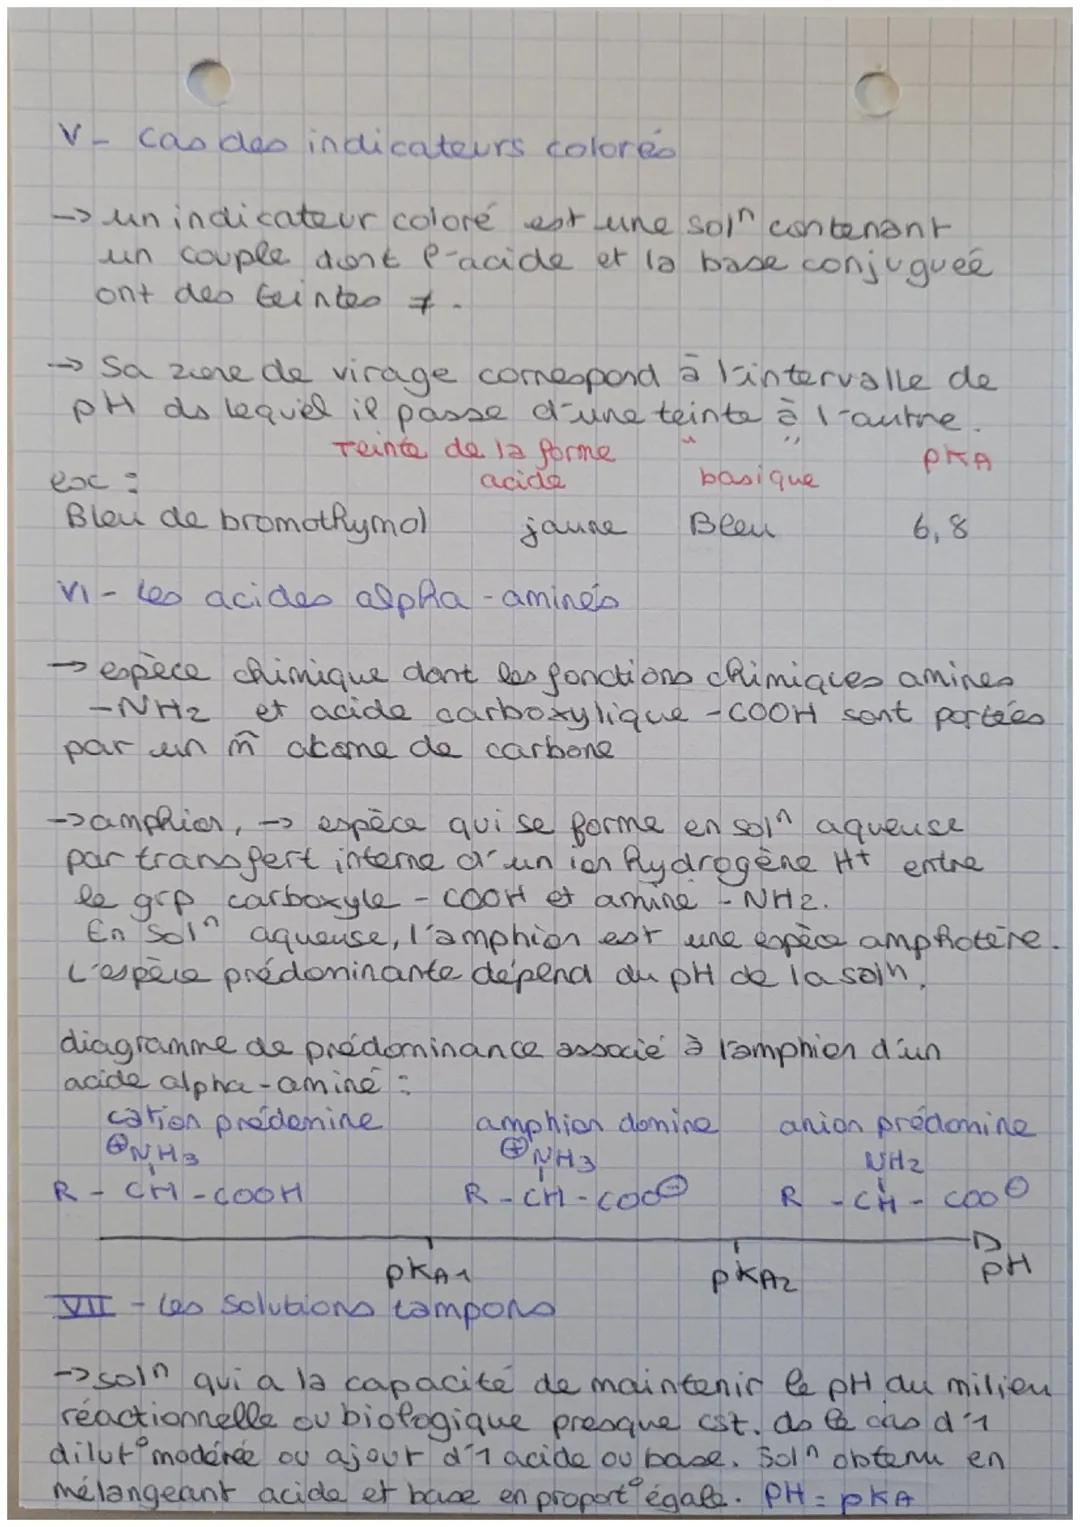 V - Cas des indicateurs colorés
→ un indicateur coloré est une solⁿ contenant
un couple dont l'acide et la base conjuguée
ont des teintes ≠.
→ Sa zone de virage correspond à l'intervalle de
pH ds lequel il passe d'une teinte à l'autre.
Teinte de la forme " " pKA
ex : acide basique
Bleu de bromothymol jaune Bleu 6,8
VI - Les acides alpha-aminés
→ espèce chimique dont les fonctions chimiques amines
-NH2 et acide carboxylique -COOH sont portées
par un m̂ atome de carbone
→ amphion, → espèce qui se forme en solⁿ aqueuse
par transfert interne d'un ion hydrogène H+ entre
le grp carboxyle -COOH et amine -NH2.
En solⁿ aqueuse, l'amphion est une espèce amphotère.
L'espèce prédominante dépend du pH de la solⁿ.
diagramme de prédominance associé à l'amphion d'un
acide alpha-aminé :
cation prédomine amphion domine anion prédomine
⊕NH3 ⊕NH3 NH2
R - CH - COOH R - CH - COO⊖ R - CH - COO⊖
pKA1 pKA2 pH
VII - Les solutions tampons
→ solⁿ qui a la capacité de maintenir le pH du milieu
réactionnelle ou biologique presque cst. ds le cas d'1
dilut° modérée ou ajout d'1 acide ou base. Solⁿ obtenu en
mélangeant acide et base en proport° égale. PH = pKA